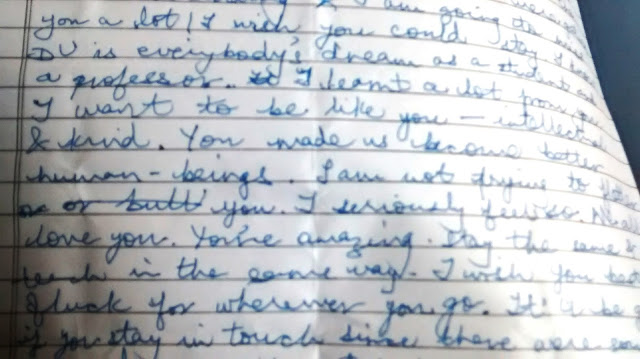 & I am going to
you a lot! I wish you could stay I
DU is everybody's dream as a student and
a professor. I learnt a lot from you
I want to be like you - intellectual
& kind. You made us become better
human-beings. I am not trying to
or butt you. I seriously feel so. Really
love you. You're amazing. Stay the same &
teach in the same way. I wish you
g luck for wherever you go. It'll be
if you stay in touch since there are